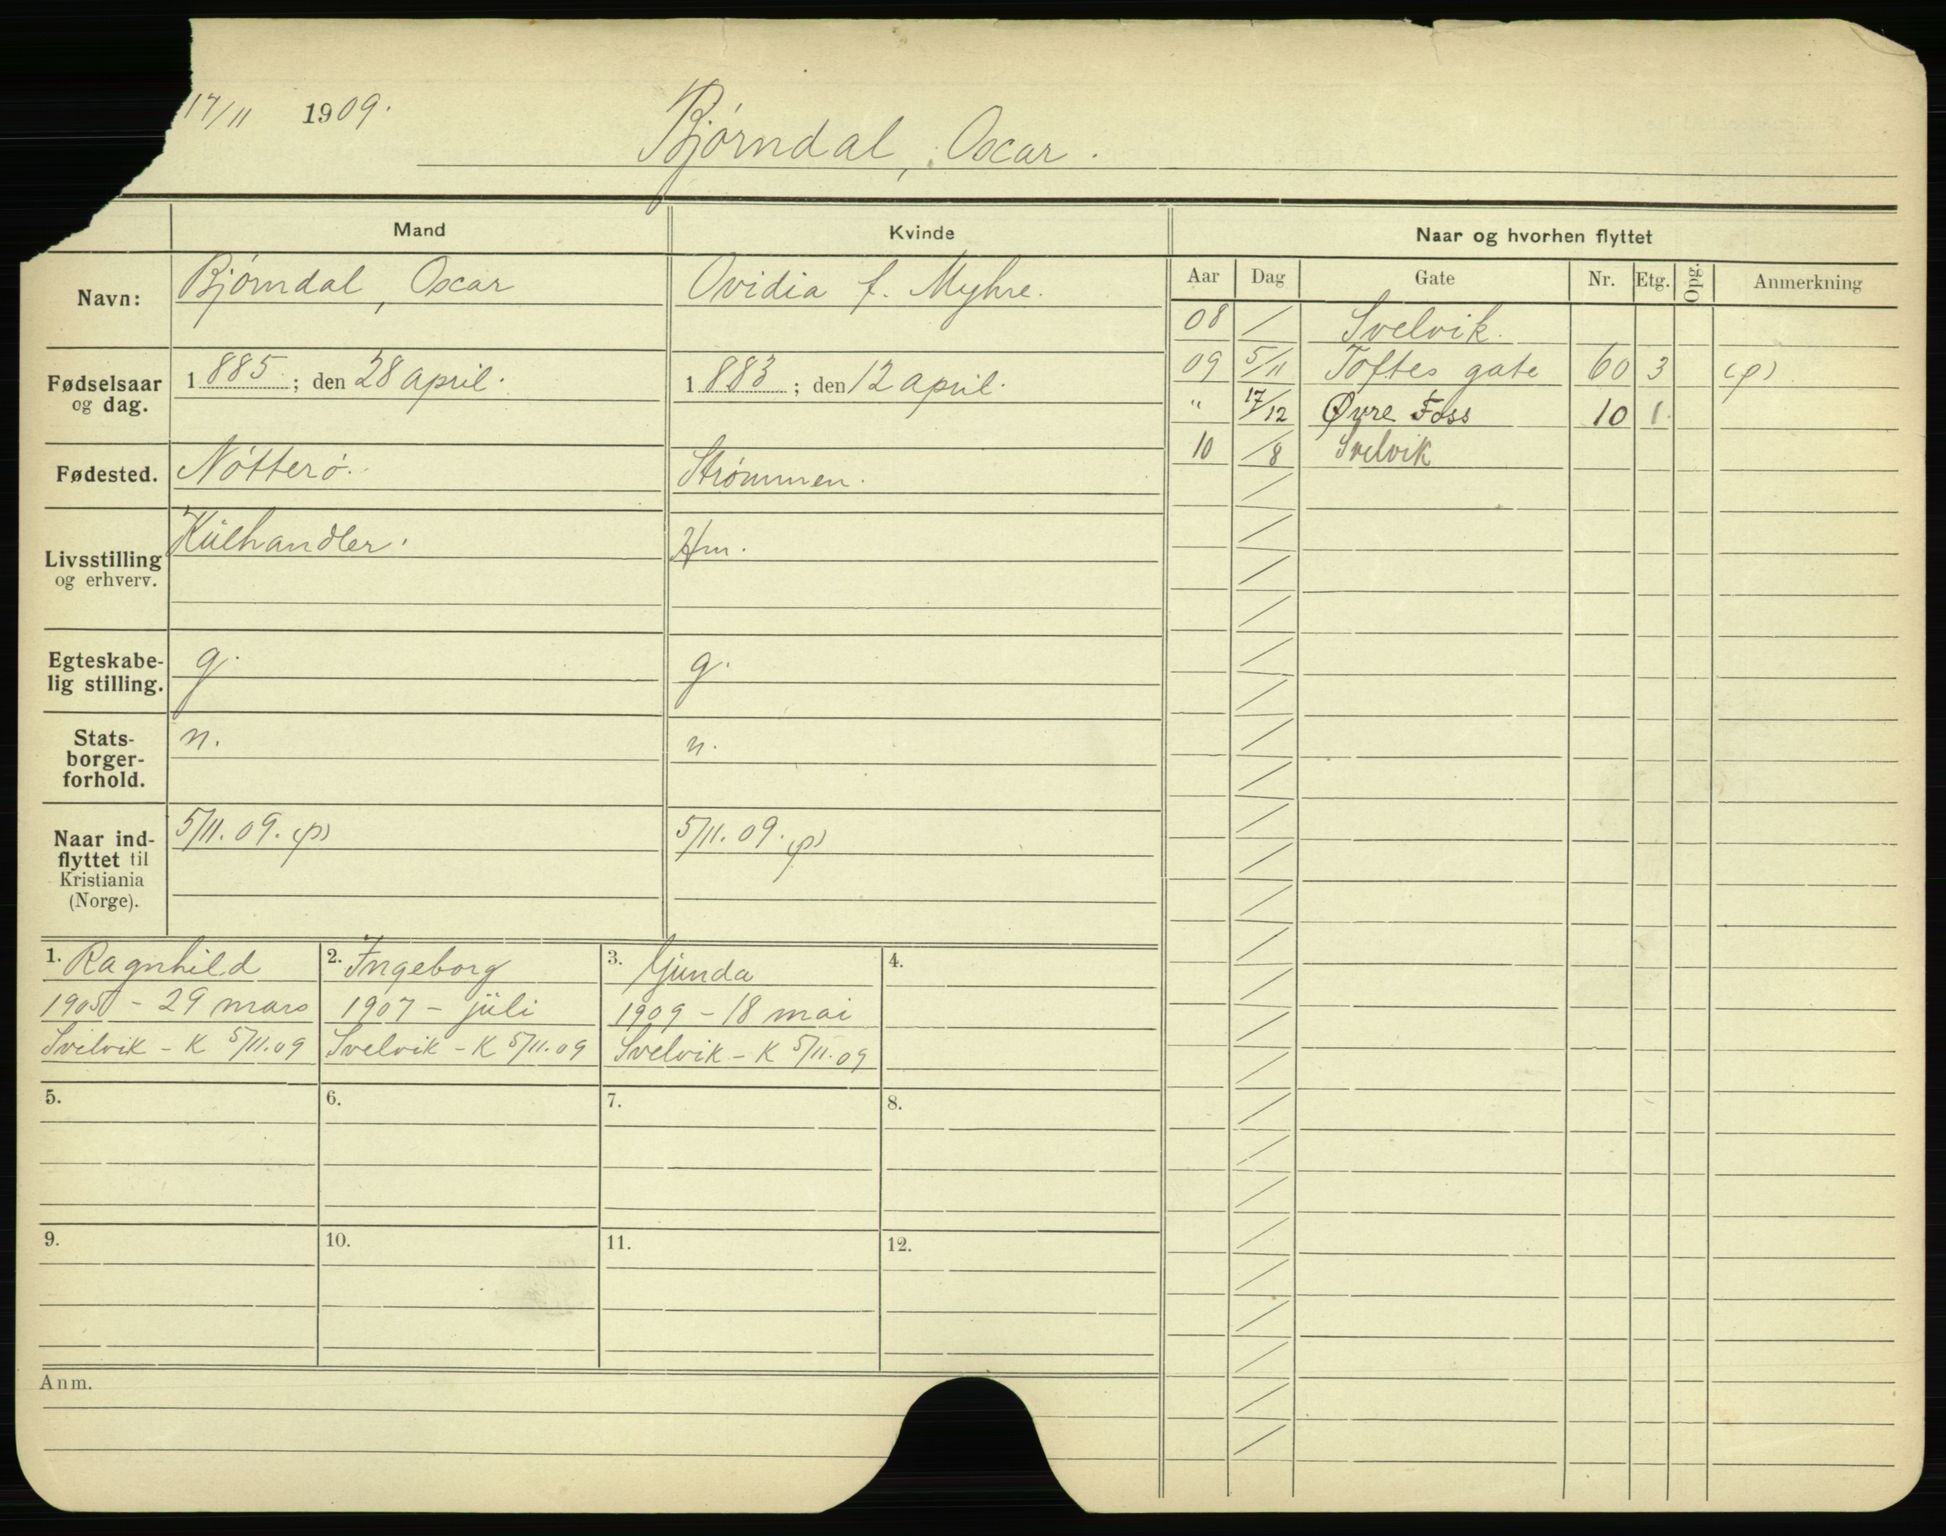 17/11 1909.
Bjørndal, Oscar.
Mand
Kvinde
Naar og hvorhen flyttet
Navn:
Bjørndal, Oscar
Ovidia f. Myhre.
Aar Dag Gate Nr. Etg. Opg. Anmerkning
08 / Svelvik.
09 5/11 Toftes gate 60 3 (p)
" 17/12 Øvre Foss 10 1.
10 /8 Svelvik
Fødselsaar og dag.
1885; den 28 april.
1883; den 12 april.
Fødested.
Nötterö.
Strømmen.
Livsstilling og erhverv.
Külhandler.
Hm.
Egteskabe-
lig stilling.
g.
g.
Stats-
borger-
forhold.
n.
n.
Naar ind-
flyttet til
Kristiania
(Norge).
5/11.09. (p)
5/11.09. (p)
1. Ragnhild
1905 - 29 mars
Svelvik - K 5/11.09
2. Ingeborg
1907 - jüli
Svelvik - K 5/11.09
3. Gunda
1909 - 18 mai
Svelvik - K 5/11.09
4.
5.
6.
7.
8.
9.
10.
11.
12.
Anm.